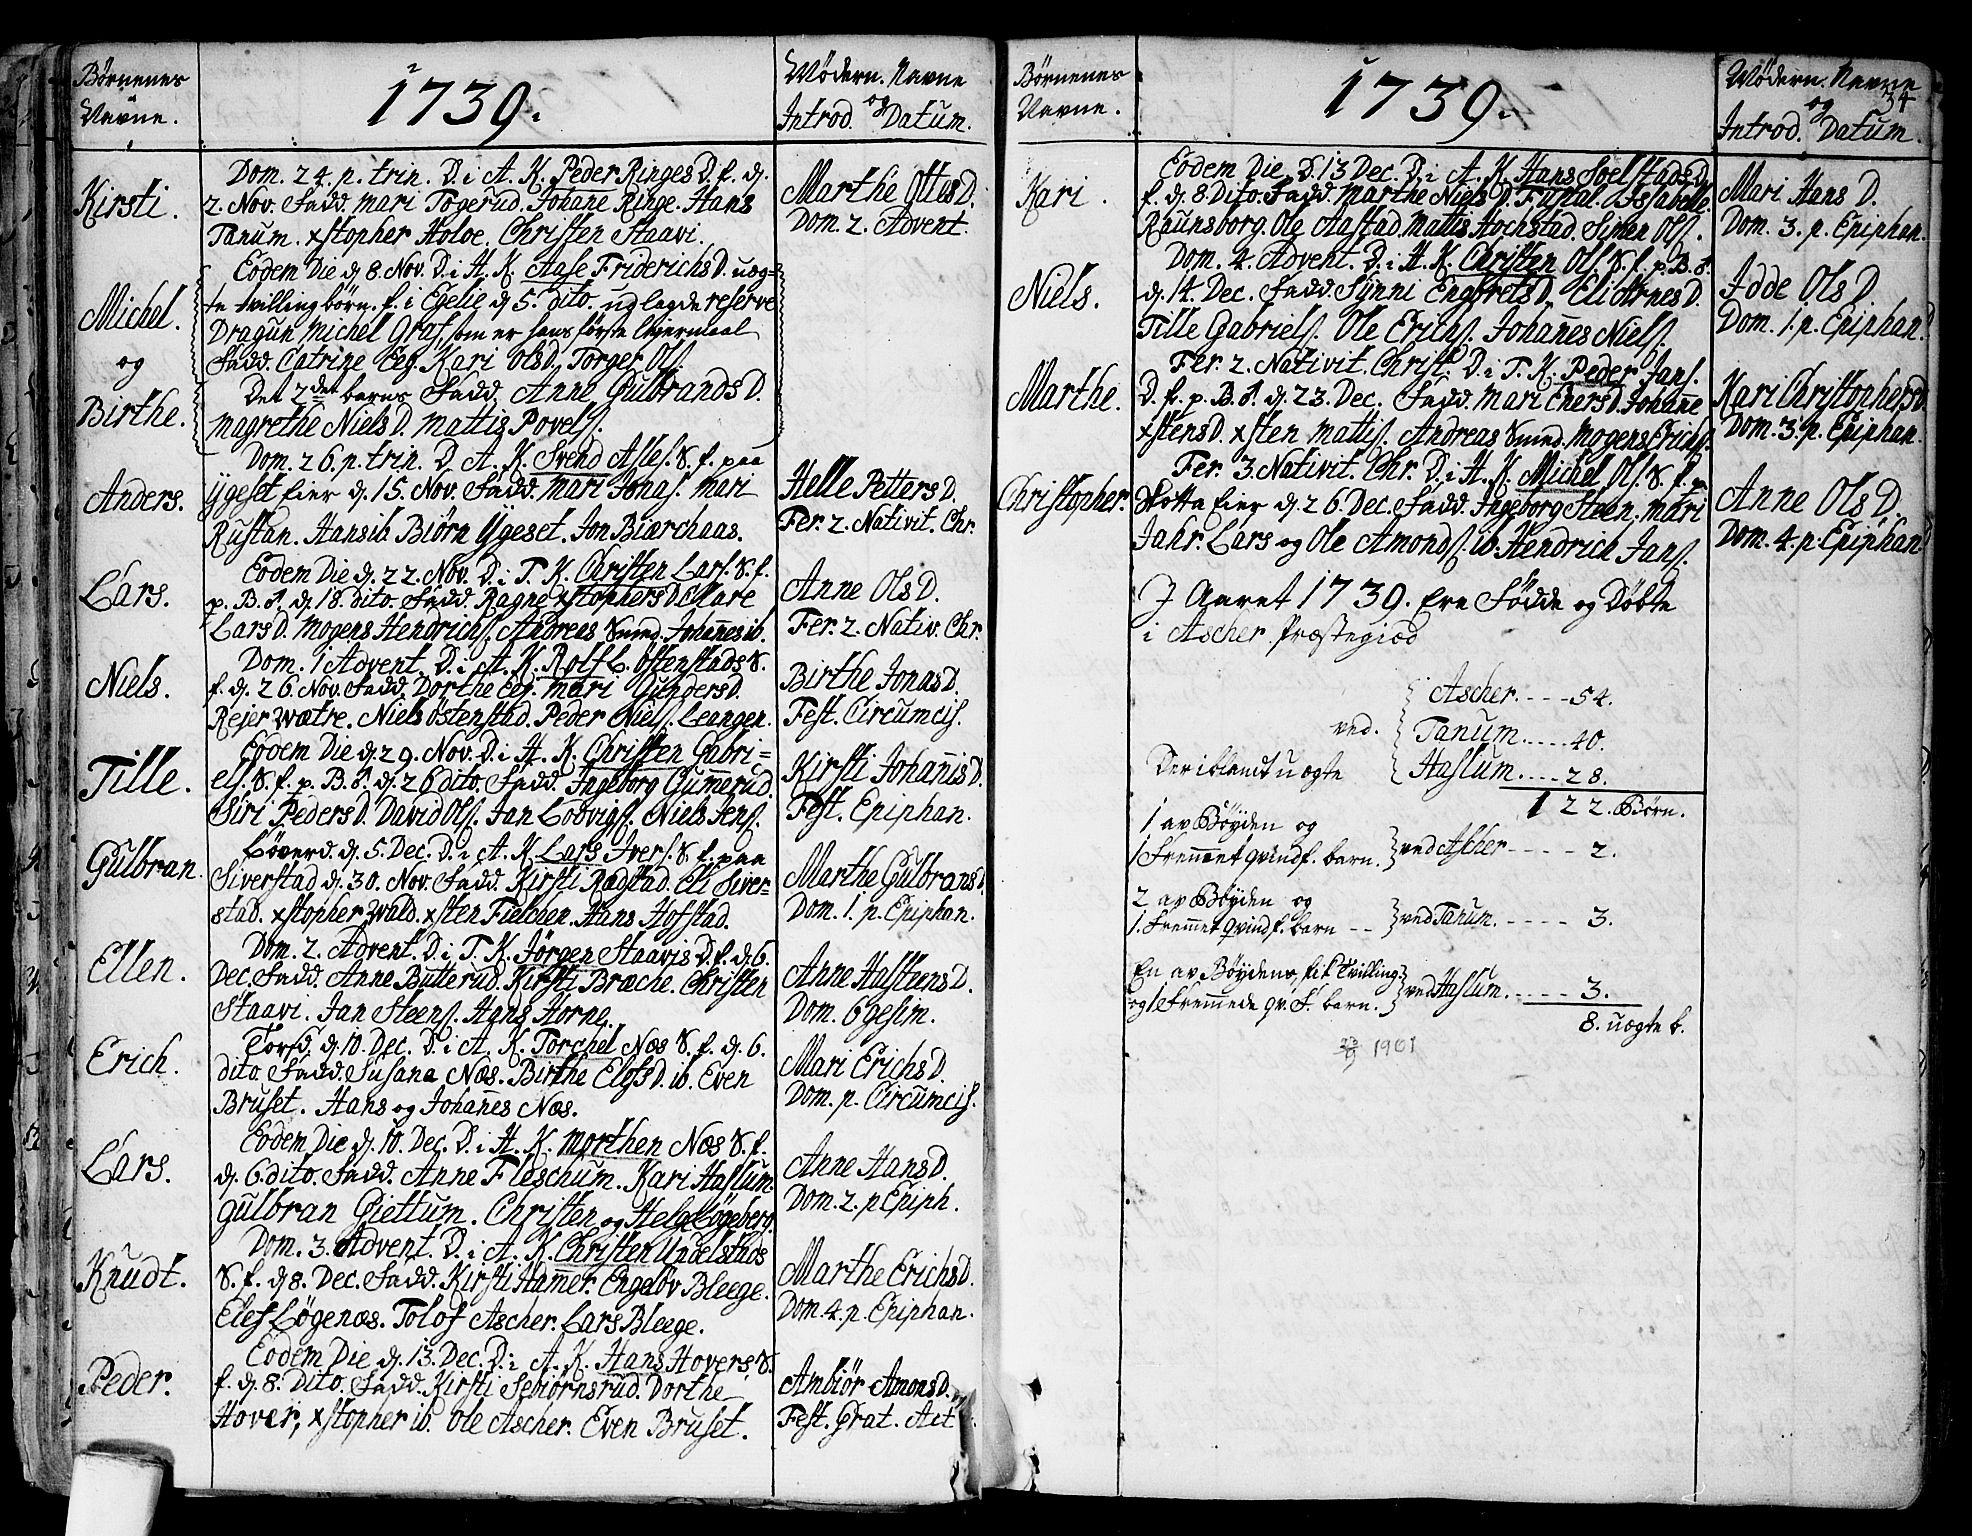 Børnenes
Navne.
1739.
Mødern. Navne
Introd. og Datum.
Kirsti.
Dom. 24. p. trin. D. i A. K. Peder Ringes D. f. d.
2. Nov. Fadd. Mari Togerud. Johanne Ringe. Hans
Tanum. xstopher Holoe. Christen Staavi.
Marthe Ottes D.
Dom. 2. Advent.
Michel.
og
Birthe.
Eodem Die d. 8. Nov. D. i H. K. Aase Friderichs D. uæg-
te tvilling børn. f. i Egelie d. 5. dito. udlagde reserve
Dragun Michel Graf, som er hans første leiermaal
Fadd. Catrine Eeg. Kari Ols D. Torger Ols.
Det 2det barns Fadd. Anne Gulbrands D.
Magrethe Niels D. Mattis Povels.
Anders.
Dom. 26. p. trin. D. A. K. Svend Asles. S. f. paa
Ygeset eier d. 15. Nov. Fadd. Mari Jonas. Mari
Rustan. Hans ib. Biørn Ygeset. Jon Biærchaas.
Helle Petters D.
Fer. 2. Nativit. Chr.
Lars.
Eodem Die d. 22. Nov. D. i T. K. Christen Lars. S. f.
p. B. d. 18. dito. Fadd. Ragne xstophers D. Mare
Lars D. Mogens Hendrichs. Andreas Smed. Johannes ib.
Anne Ols D.
Fer. 2. Nativ. Chr.
Niels.
Dom. 1 Advent. D. i A. K. Rolf L. Østenstads S.
f. d. 26. Nov. Fadd. Dorthe Eeg. Mari Gunders D.
Rejer Wætre. Niels Østenstad. Peder Niels. Leangen.
Birthe Jonas D.
Fest. Circumcis.
Tille.
Eodem Die d. 29. Nov. D. i H. K. Christen Gabri-
els. S. f. p. B. d. 26 dito. Fadd. Ingeborg Gummerud.
Siri Peders D. David Ols. Jan Lodvigs. Niels Jens.
Kirsti Johannis D.
Fest. Epiphan.
Gulbran.
Løverd. d. 5. Dec. D. i A. K. Lars Ivers. S. f. paa
Siverstad d. 30. Nov. Fadd. Kirsti Rædstad. Eli Siver-
stad. xstopher Wald. xsten Fielchen. Hans Hofstad.
Marthe Gulbrans D.
Dom. 1. p. Epiphan.
Ellen.
Dom. 2. Advent. D. i T. K. Jørgen Staavis D. f. d. 6.
Dec. Fadd. Anne Butterud. Kirsti Bræche. Christen
Staavi. Jan Steens. Hans Horne.
Anne Halsteens D.
Dom. 6gesim.
Erich.
Torsd. d. 10. Dec. D. i A. K. Torchel Næs S. f. d. 6.
dito. Fadd. Susana Næs. Birthe Elofs D. ib. Even
Bruset. Hans og Johannes Næs.
Mari Erichs D.
Dom. p. Circumcis.
Lars.
Eodem Die d. 10. Dec. D. i H. K. Morthen Næs S. f.
d. 6. dito. Fadd. Anne Fleschum. Kari Haslum.
Gulbran Giettum. Christen og Helge Løgeberg.
Anne Hans D.
Dom. 2. p Epiph.
Knudt.
Dom. 3. Advent. D. i A. K. Christen Undelstads
S. f. d. 8. Dec. Fadd. Kirsti Hamer. Engebør Bleege.
Elef Løgenæs. Tolof Ascher. Lars Bleege.
Marthe Erichs D.
Dom. 4. p. Epiphan.
Peder.
Eodem Die d. 13. Dec. D. i A. K. Hans Hovers S.
f. d. 8. Dito. Fadd. Kirsti Sebiørnsrud. Dorthe
Hover, xstopher ib. Ole Ascher. Even Bruset.
Ambiør Amons D.
Fest. Grat. Act
Børnenes
Navne.
1739.
Mødern. Navne
34
Introd. og Datum.
Kari.
Eodem Die D. 13 Dec. D. i A. K. Hans Soelstads D.
f. d. 8. Dito. Fadd. Marthe Niels D. Fustal. Issabelle
Raunsborg. Ole Aastad. Mattis Hochstad. Simen Ols.
Mari Hans D.
Dom. 3. p. Epiphan.
Niels.
Dom. 4. Advent. D. i H. K. Christen Ols S. f. p. B.
d. 14. Dec. Fadd. Synni Engbrets D. Eli Arnes D.
Tille Gabriels. Ole Erichs. Johannes Niels.
Idde Ols D.
Dom. 1. p. Epiphan.
Marthe.
Fer. 2. Nativit. Christ. D. i T. K. Peder Jans.
D. f. p. B. d. 23. Dec. Fadd. Mari Ehers D. Johanne
xstens D. xsten Mattis. Andreas Smed. Mogens Erichs.
Kari Christophers D.
Dom. 3. p. Epiphan.
Christopher.
Fer. 3. Nativit. Chr. D. i H. K. Michel Ols. S. f. p.
Slotta eier d. 26. Dec. Fadd. Ingeborg Steen. Mari
Jahr. Lars og Ole Amonds. ib. Hendrich Jans.
Anne Ols D.
Dom. 4. p. Epiphan
I Aaret 1739. Ere Fødde og Døbte
i Ascher Præstegiæd
ved.
Ascher. - - - - 54.
Tanum. . . . . 40.
Haslum. . . . 28.
122. Børn.
Deriblandt uægte
1 av Bøyden og
1 Fremmet qvindf. barn. } ved Ascher - - - - - 2.
2 av Bøyden og
1. Fremmet qvindf. barn - - } ved Tanum. - - - - - 3.
En av Bøyden, fik Tvilling
og 1 Fremmede qv. F. barn. } ved Haslum. - - - - - 3.
8. uægte b.
1901